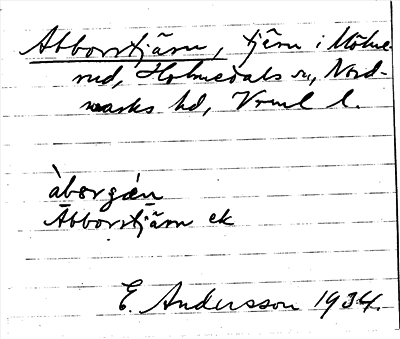 Abborrtjärn, tjärn i Mölne-
rud, Holmedals sn, Nord-
marks hd, Vrml l.
àborgæ̀n
Abborrtjärn ek
E. Andersson 1934.